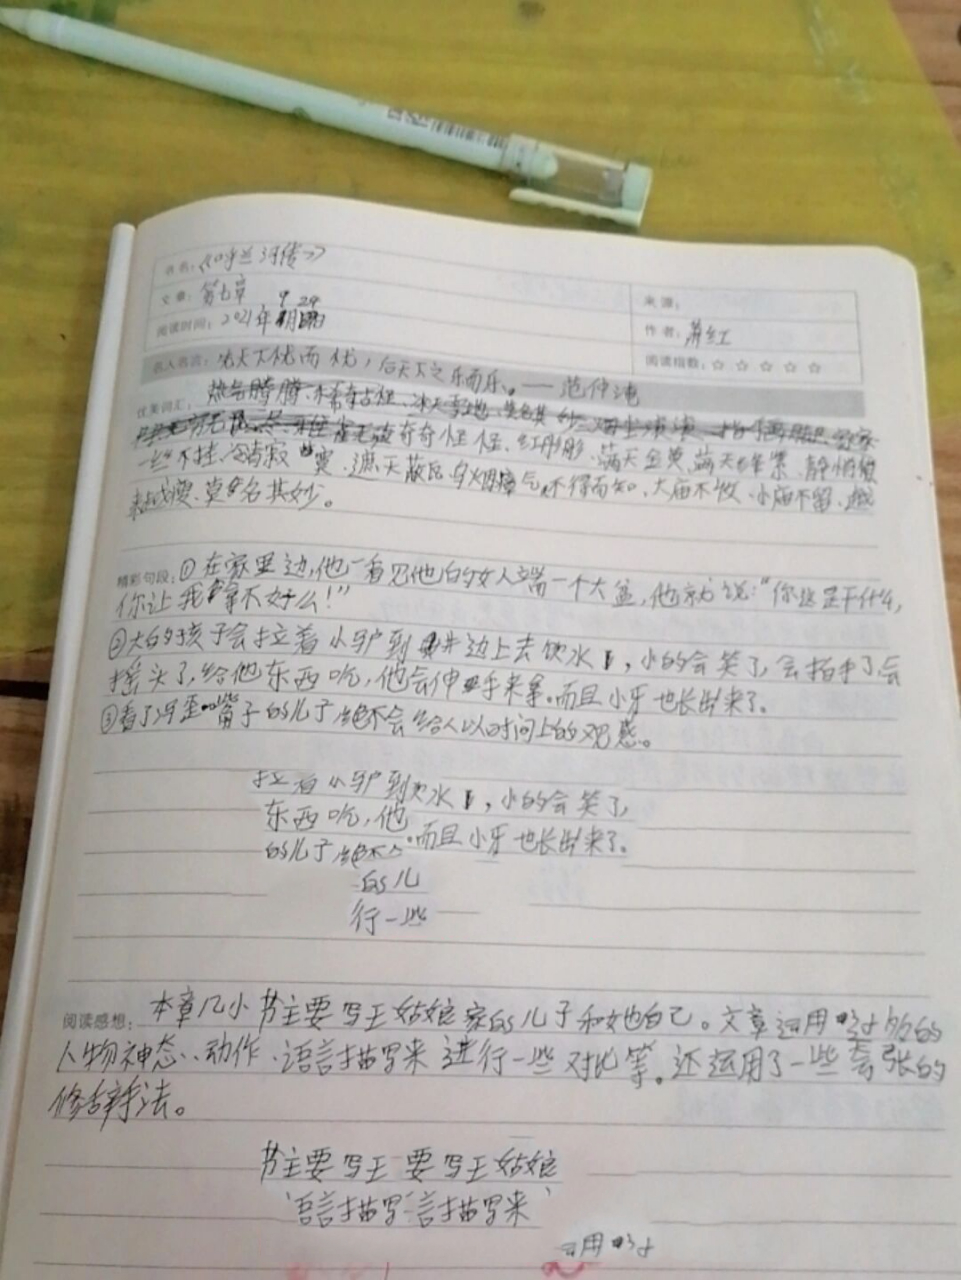 书名：《呼兰河传》
文章：第七章 9 29 来源：
阅读时间：2021年 月 作者：萧红
名人名言：先天下忧而忧，后天下之乐而乐。——范仲淹 阅读指数：☆ ☆ ☆ ☆ ☆
优美词汇：热气腾腾、稀奇古怪、冰天雪地、莫名其妙
奇奇怪怪、红彤彤、满天金黄、满天、静悄悄
一丝不挂、寂寞、遮天蔽日、乌烟瘴气、不得而知、大庙不收、小庙不留、越
来越瘦、莫名其妙。
精彩句段：①在家里边，他一看见他的女人端一个大盆，他就说：“你这是干什么，
你让我拿不好么！”
②大的孩子会拉着小驴到井边上去饮水了，小的会笑了，会拍手了，会
摇头了，给他东西吃，他会伸手来拿。而且小牙也长出来了。
③看了冯歪嘴子的儿子绝不会给人以时间上的观感。
拉着小驴到饮水，小的会笑了，
东西吃，他.而且小牙也长出来了。
的儿子绝不
的儿
行一些
阅读感想：本章几小节主要写王姑娘家的儿子和她自己。文章运用 的
人物神态、动作、语言描写来进行一些对比等。还运用了一些夸张的
修辞手法。
节主要写王 要写王姑娘
语言描写言描写来
用